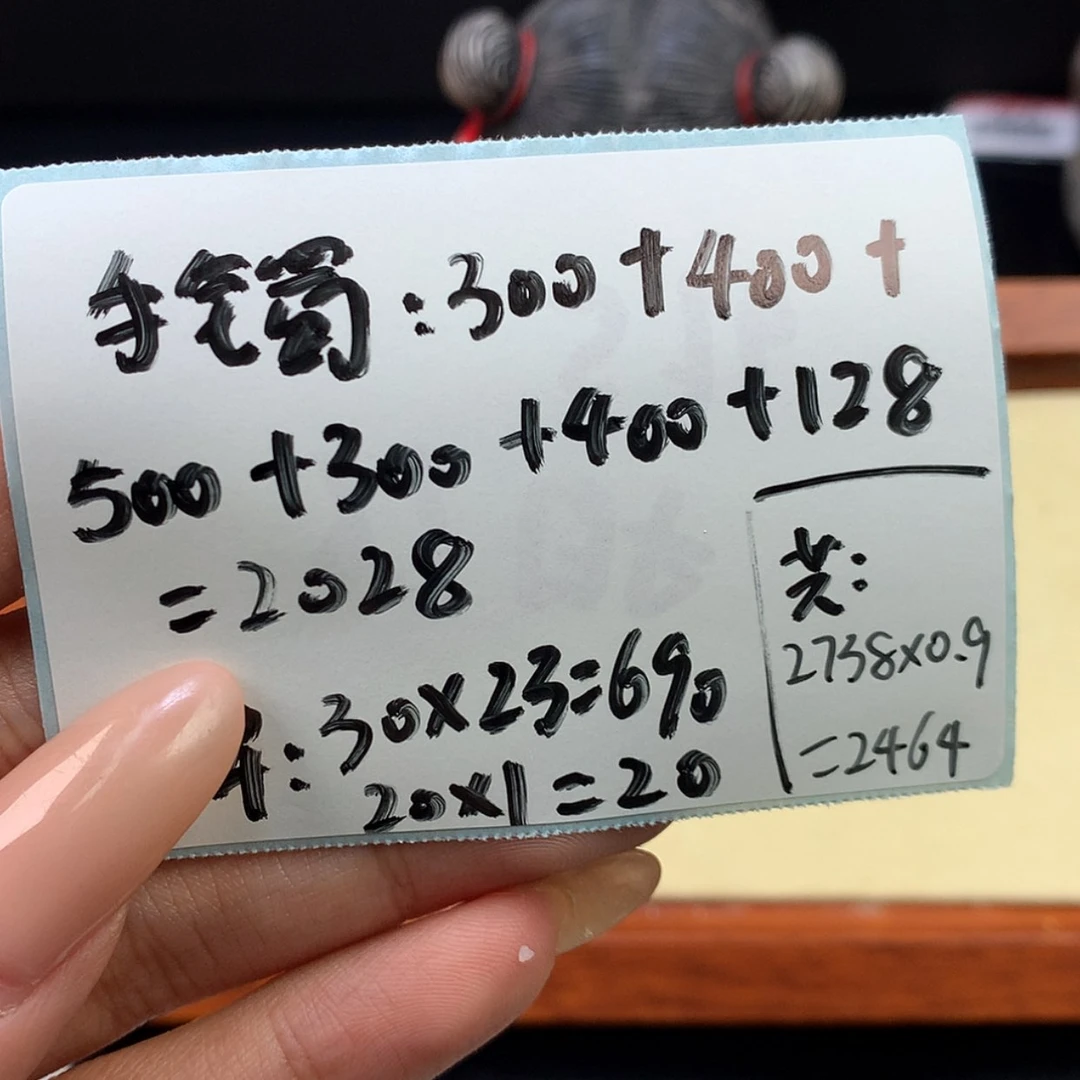 手笔蜀:300+400+
500+300+400+128
=2028
:30×23=690
20×1=20
共:
2738×0.9
=2464